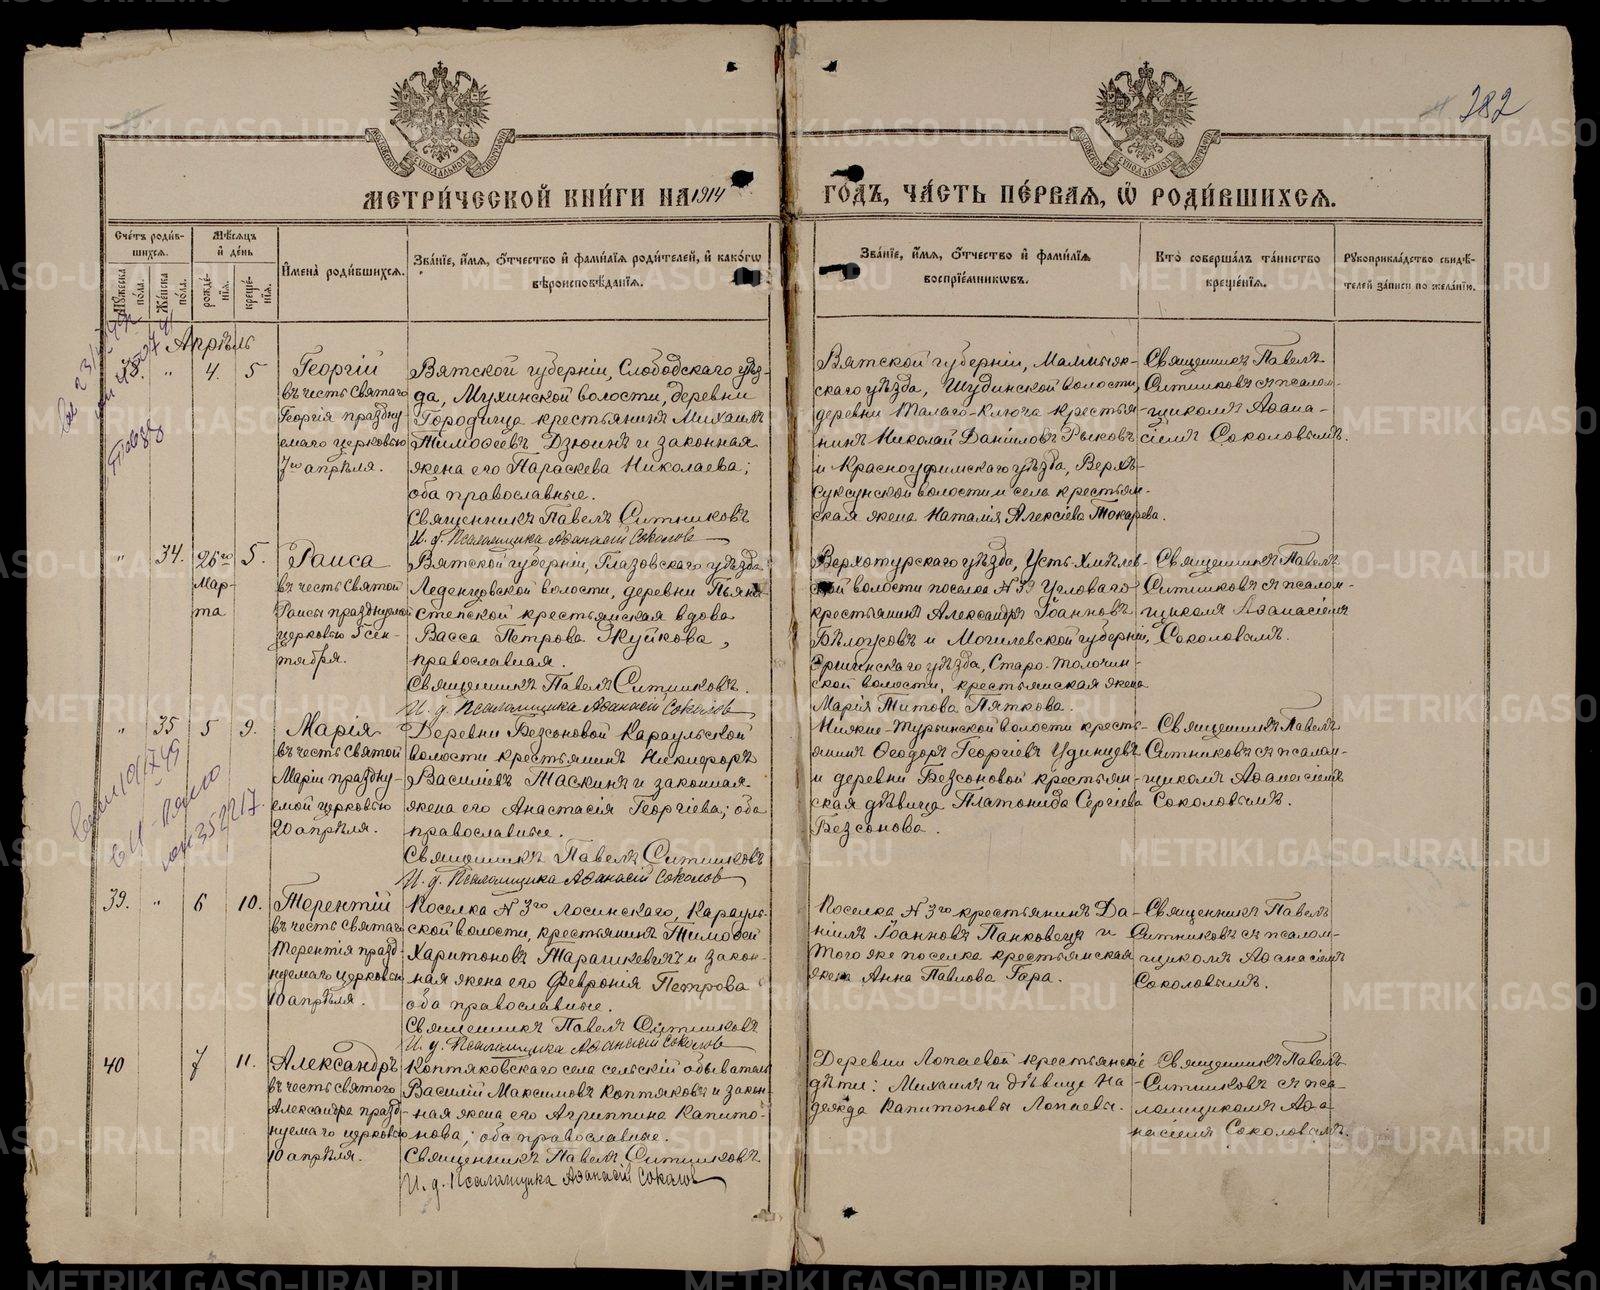 282
МЕТРИ́ЧЕСКОЙ КНИ́ГИ НА 1914 ГО́ДЪ, ЧА́СТЬ ПЕ́РВАЯ, Ѡ҆ РОДИ́ВШИХСЯ.
Сче́тъ роди́в-
шихся.
Мѣ́сяцъ
и҆ де́нь
Мꙋ́жеска
по́ла.
Же́нска
по́ла.
рожде́-
нїя.
креще́-
нїя.
И҆мена̀ роди́вшихся.
Зва́нїе, и҆́мя, ѻ҆́тчество и҆ фами́лїя роди́телей, и҆ како́гѡ
вѣроисповѣ́данїя.
Зва́нїе, и҆́мя, ѻ҆́тчество и҆ фами́лїя
воспрїе́мникѡвъ.
Кто̀ соверша́лъ та́инство
креще́нїя.
Рꙋкоприкла́дство свидѣ́-
телей за́писи по жела́нїю.
Апрѣль
38. " 4. 5
Георгій
въ честь Святаго
Георгія праздну-
емаго церковью
7го апрѣля.
Вятской губерніи, Слободскаго уѣз-
да, Мухинской волости, деревни
Городище крестьянинъ Михаилъ
Тимоѳеевъ Дзюинъ и законная
жена его Параскева Николаева;
оба православные.
Священникъ Павелъ Ситниковъ
И. д. Псаломщика Аѳанасій Соколовъ
Вятской губерніи, Малмыж-
скаго уѣзда, Шудинской волости,
деревни Малаго-Ключа крестья-
нинъ Николай Даніиловъ Рыковъ
и Красноуфимскаго уѣзда, Верхъ-
Суксунской волости и села крестьян-
ская жена Наталія Алексіева Токарева.
Священникъ Павелъ
Ситниковъ съ псалом-
щикомъ Аѳана-
сіемъ Соколовымъ.
" 34. 26го 5.
Мар-
та
Раиса
въ честь Святой
Раисы празднуемой
церковью 5 сен-
тября.
Вятской губерніи, Глазовскаго уѣзда
Леденцовской волости, деревни
степской крестьянская вдова
Васса Петрова Жуйкова,
православная.
Священникъ Павелъ Ситниковъ.
И. д. Псаломщика Аѳанасій Соколовъ
Верхотурскаго уѣзда, Усть-Хмѣлев-
ской волости поселка № 33 Угловаго
крестьянинъ Александръ Іоанновъ
Бѣлоусовъ и Могилевской губерніи,
Оршинскаго уѣзда, Старо-Толочин-
ской волости, крестьянская жена
Марія Титова Пяткова.
Священникъ Павелъ
Ситниковъ съ псалом-
щикомъ Аѳанасіемъ
Соколовымъ.
" 35 5 9.
Марія
въ честь Святой
Маріи праздну-
емой церковью
20 апрѣля.
Деревни Безсоновой Караульской
волости крестьянинъ Никифоръ
Василіевъ Таскинъ и законная
жена его Анастасія Георгіева; оба
православные.
Священникъ Павелъ Ситниковъ
И. д. Псаломщика Аѳанасій Соколовъ
Нижне-Туринской волости кресть-
янинъ Ѳеодоръ Георгіевъ Удинцевъ
и деревни Безсоновой крестьян-
ская дѣвица Платонида Сергіева
Безсонова.
Священникъ Павелъ
Ситниковъ съ псалом-
щикомъ Аѳанасіемъ
Соколовымъ.
39. " 6 10.
Терентій
въ честь Святаго
Терентія празд-
нуемаго церковью
10 апрѣля.
Поселка № 3го Лосинскаго, Карауль-
ской волости, крестьянинъ Тимоѳей
Харитоновъ Тарашкевичъ и закон-
ная жена его Февронія Петрова
оба православные.
Священникъ Павелъ Ситниковъ
И. д. Псаломщика Аѳанасій Соколовъ
Поселка № 3го крестьянинъ Да-
ніилъ Іоанновъ Панковецъ и
того же поселка крестьянская
жена Анна Павлова Гара.
Священникъ Павелъ
Ситниковъ съ псалом-
щикомъ Аѳанасіемъ
Соколовымъ.
40 7 11.
Александръ
въ честь святого
Александра празд-
нуемаго церковью
10 апрѣля.
Коптяковскаго села сельскій обыватель
Василій Максимовъ Коптяковъ и закон-
ная жена его Агриппина Капито-
нова; оба православные.
Священникъ Павелъ Ситниковъ
И. д. Псаломщика Аѳанасій Соколовъ
Деревни Лопаевой крестьянскіе
дѣти: Михаилъ и дѣвица На-
дежда Капитоновы Лопаевы.
Священникъ Павелъ
Ситниковъ съ пса-
ломщикомъ Аѳа-
насіемъ Соколовымъ.
METRIKI.GASO-URAL.RU